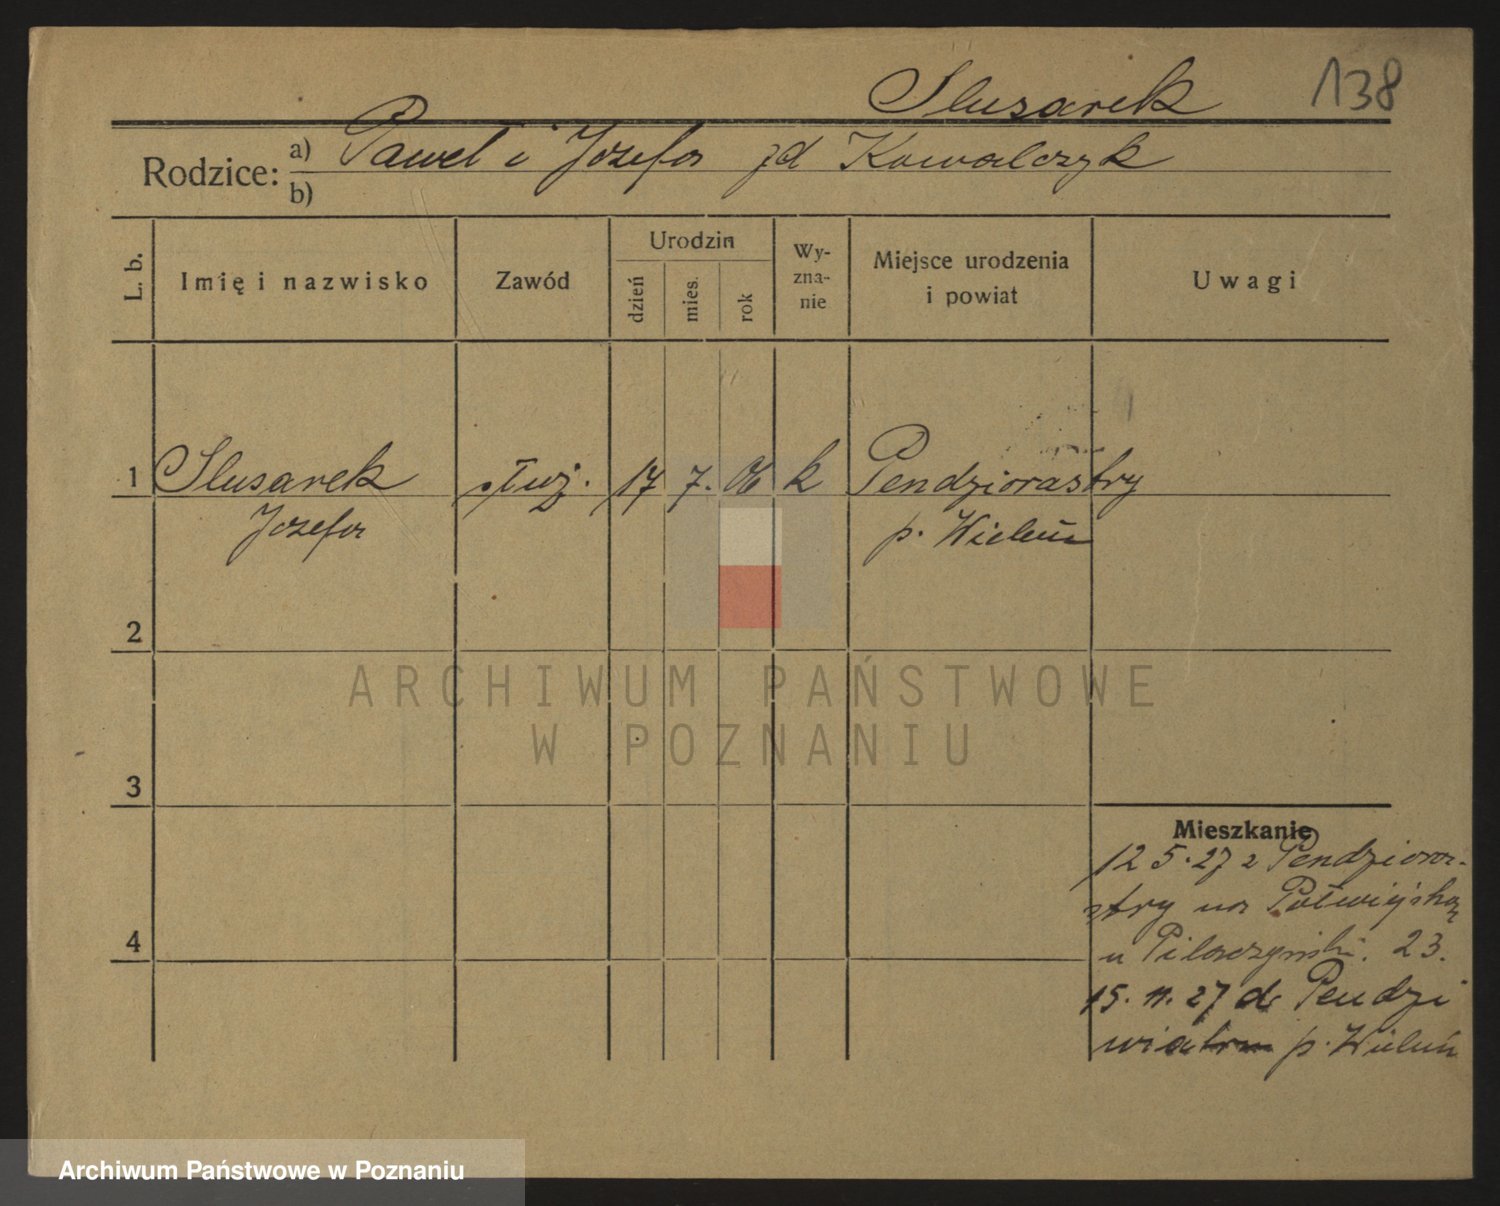 Slusarek
138
Rodzice: a) Paweł i Jozefa zd Kowalczyk
b)
L. b. Imię i nazwisko Zawód Urodzin dzień mies. rok Wy-zna-nie Miejsce urodzenia i powiat Uwagi
1 Slusarek służ. 17 7. 06 k Pendziorastry
Jozefa p. Wieluń
2
ARCHIWUM PAŃSTWOWE
W POZNANIU
3
Mieszkanie
12 5. 27 z Pendziora-
stry na Półwiejską
4
u Pilaczyński. 23.
15. 11. 27 do Pendzi
p. Wieluń
Archiwum Państwowe w Poznaniu